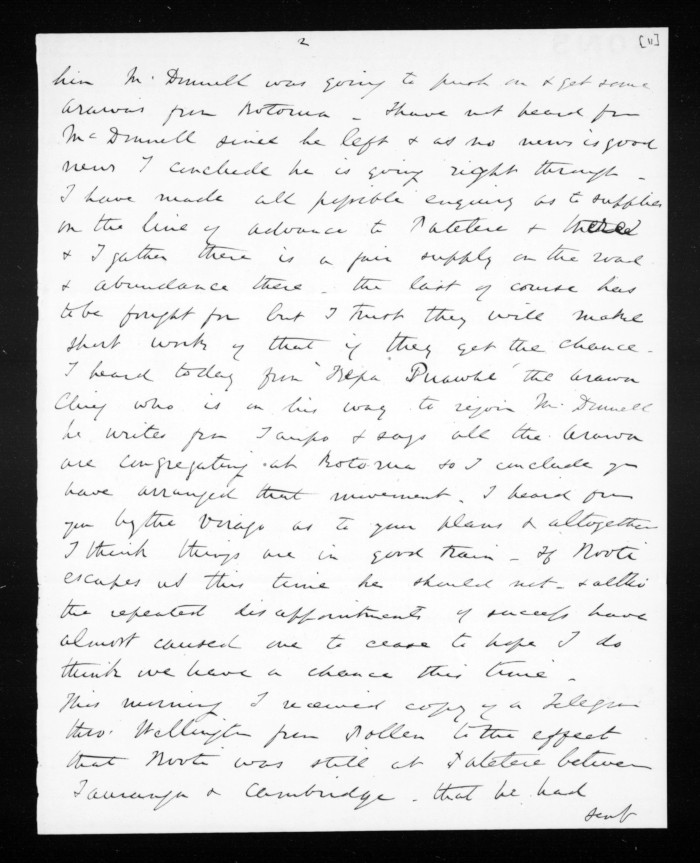 2 [11]
him Mc Donnell was going to push on & get some
Arawas from Rotorua _ I have not heard from
McDonnell since he left & as no news is good
news I conclude he is going right through _
I have made all possible enquiry as to supplies
on the line of advance to Patetere &
& I gather there is a fair supply on the road
& abundance there _ the last of course has
to be fought for but I trust they will make
short work of that if they get the chance _
I heard today from "Puawhe" the Arawa
Chief who is on his way to rejoin Mc Donnell
he writes from Taupo & says all the Arawa
are congregating at Rotorua so I conclude you
have arranged that movement _ I heard from
you by the Virago as to your plans & altogether
I think things are in good train _ If Kooti
escapes us this time he should not _ & altho
the repeated disappointments of success have
almost caused me to cease to hope I do
think we have a chance this time _
This morning I received copy of a Telegram
thro' Wellington from Pollen to the effect
that Kooti was still at Patetere between
Tauranga & Cambridge _ that he had
sent